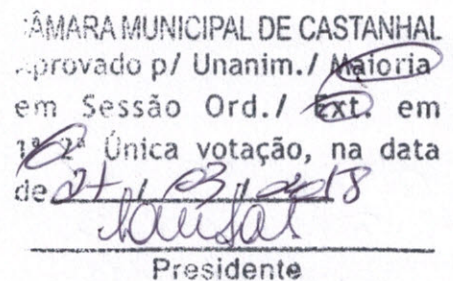 CÂMARA MUNICIPAL DE CASTANHAL
Aprovado p/ Unanim./ Maioria
em Sessão Ord./ Ext. em
1ª 2ª Única votação, na data
de / 03 / 2018
Presidente